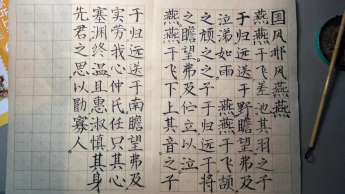 国风邶风燕燕
燕燕于飞差池其羽之子
于归远送于野瞻望弗及
泣涕如雨 燕燕于飞颉
之颃之之子于归远于将
之瞻望弗及伫立以泣
燕燕于飞下上其音之子
于归远送于南瞻望弗及
实劳我心仲氏任只其心
塞渊终温且惠淑慎其身
先君之思以勖寡人